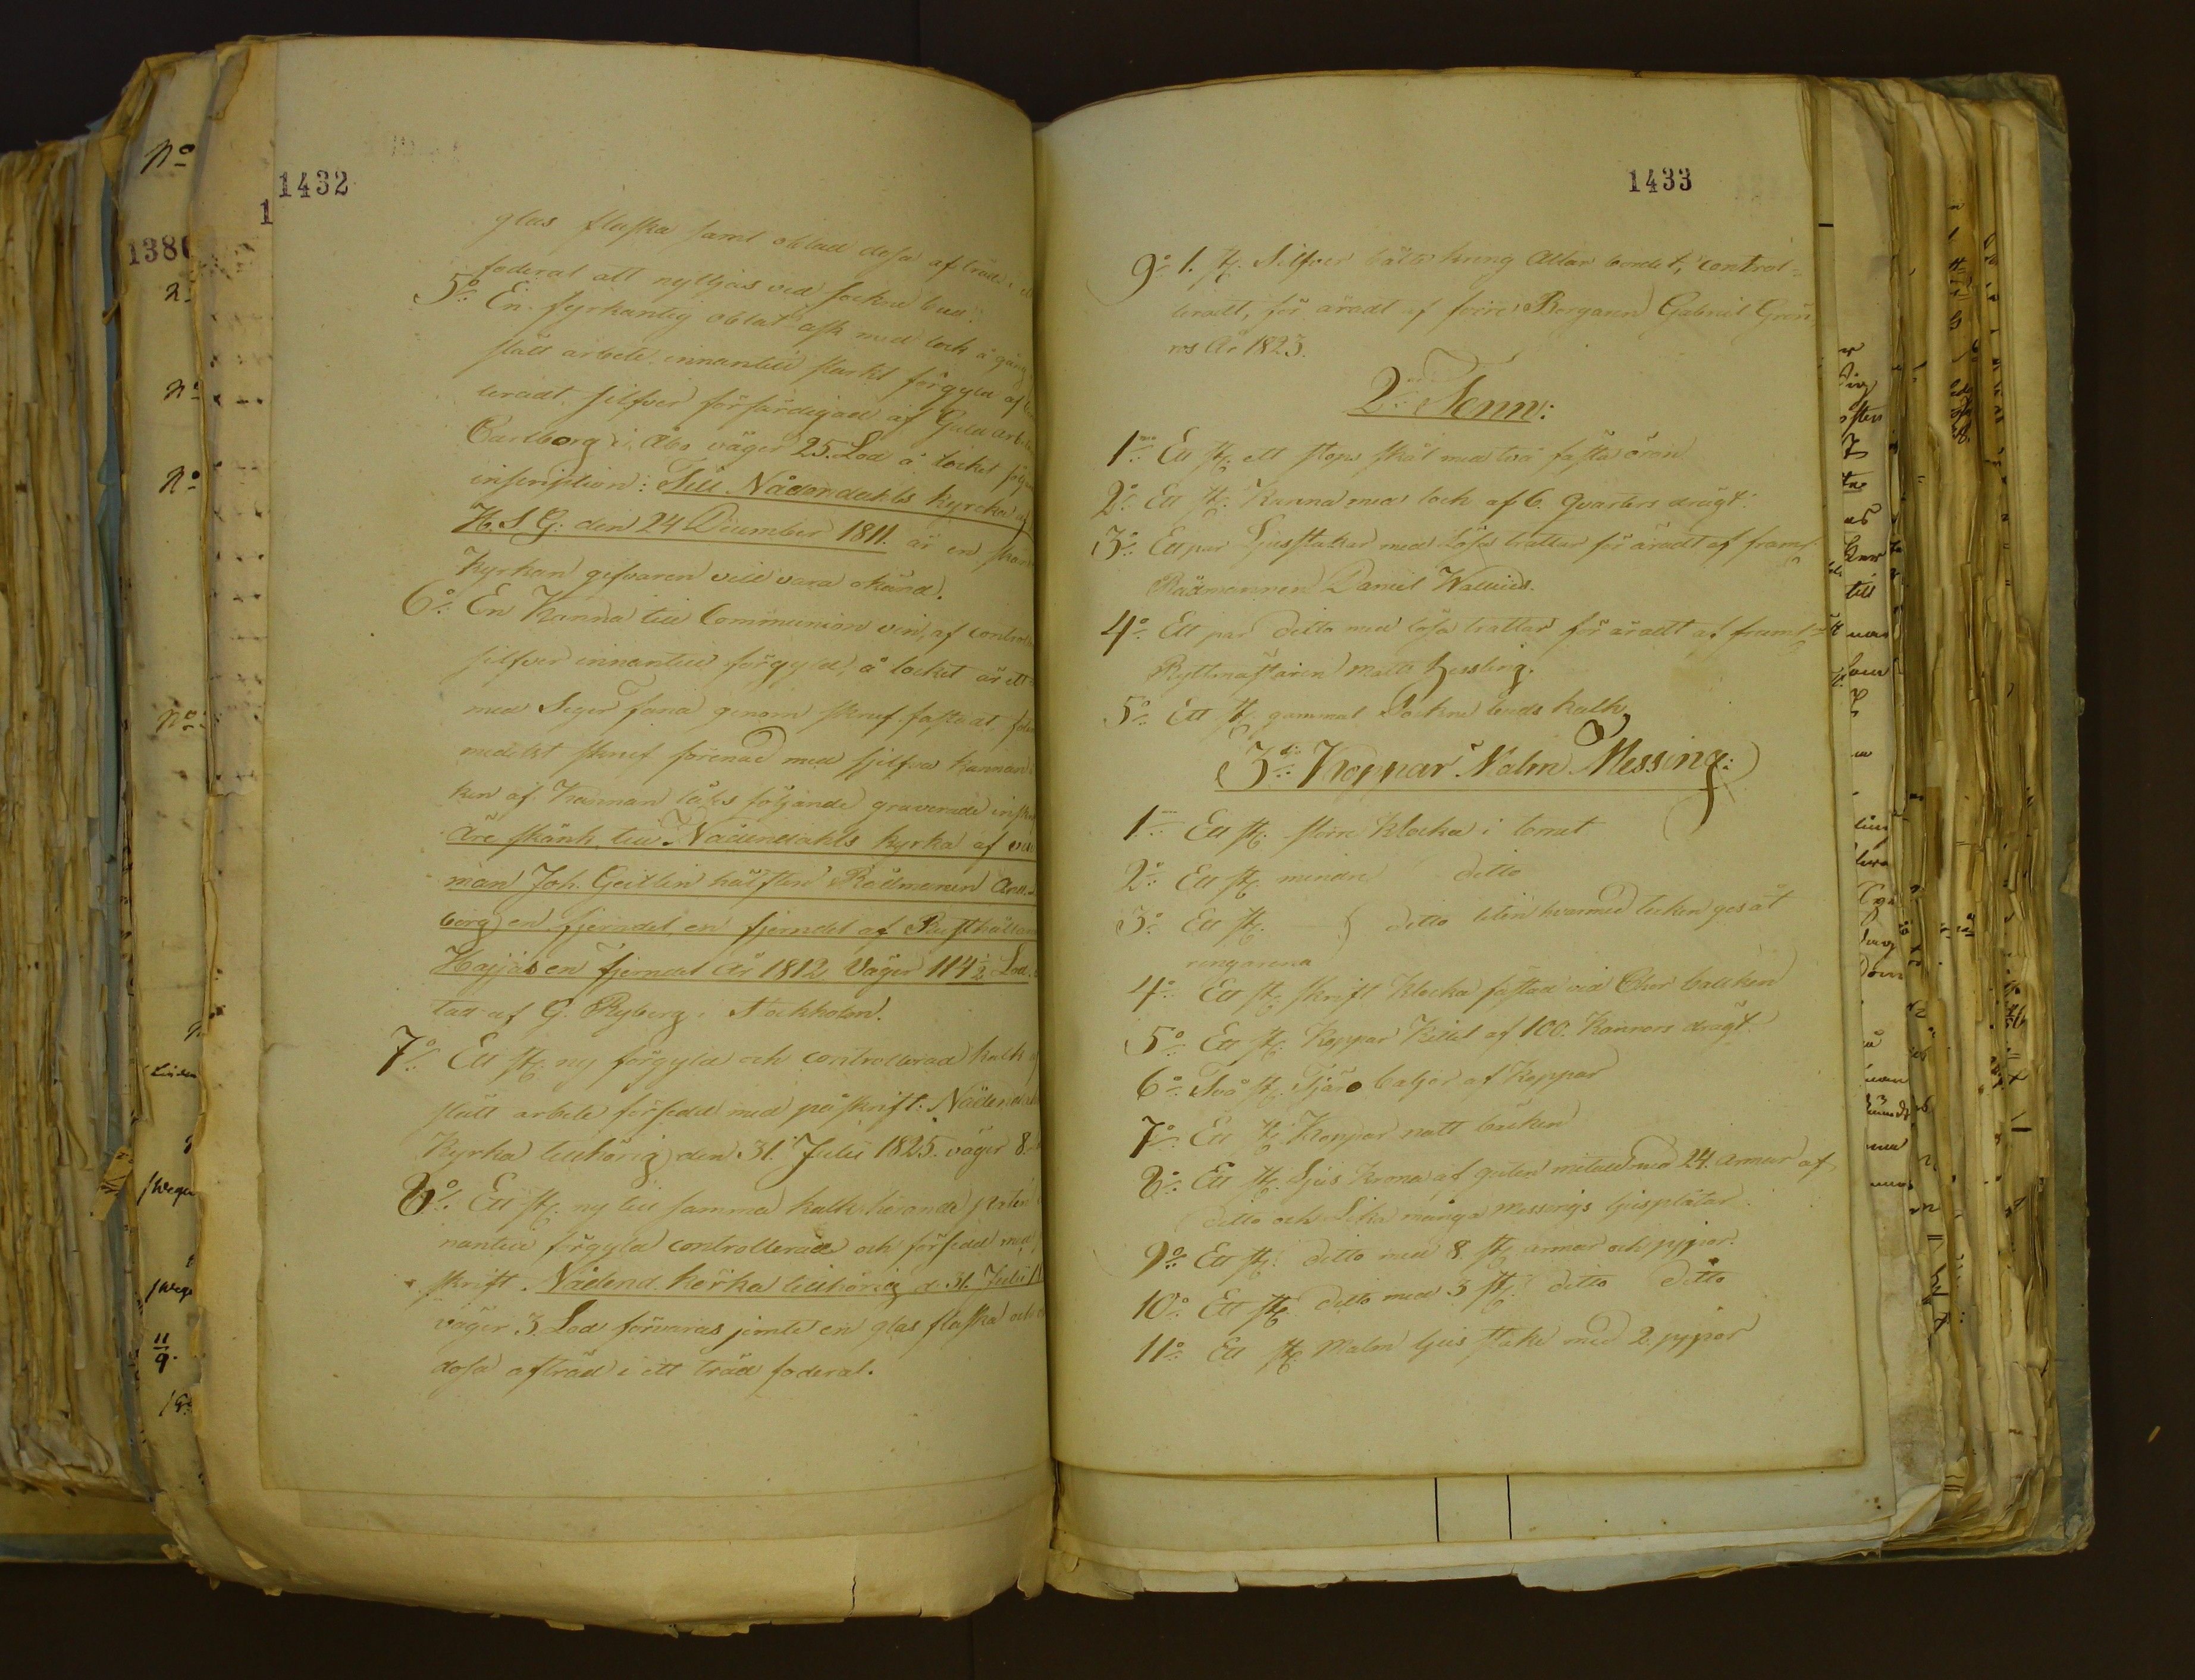 1432
glas flaska samt oblad dosa af träd i
foderal att nyttjas vid sockne bud.
5o En fyrkantig oblat ask med lock å gång
slätt arbete innantill starkt förgyld af
leradt silfver förfärdigad af Guld arb
Carlborg i Åbo väger 25. Lod å locket följ
inscription: Till Nådendahls kyrcka af
H. S. G: den 24 December 1811. är en skän
Kyrkan gifvaren vill vara okänd.
6o En Kanna till Communion vin, af controll
silfver innantill förgyld, å locket är ett
med Seger fana genom skruf fastsat,
medelst skruf förenad med sjelfva kannan
ken af Kannan läses följande graverade insk
Äre skänk till Nådendahls kyrka af
man Joh. Geitlin hälften Rådmannen And.
berg en fjerndel, en fjerndel af Rusthållar
Hajjas en fjerndel År 1812 Väger 114 1/2 Lod.
tad af G. Ryberg i Stockholm.
7o Ett st. ny förgyld och controllerad kalk
slätt arbete försedd med påskrift: Nådend
Kyrka tillhörig den 31. Julii 1825. väger 8.
8o Ett st. ny till samma kalk hörande paten
nantill förgyld controllerad och försedd med
skrift. Nådend. kyrka tillhörig d. 31. Julii 18
väger 3. Lod förvaras jemte en glas flaska och
dosa af träd i ett träd foderal.
1433
9o 1. st. Silfver bälte kring Altar bordet, control=
leradt, för äradt af förre Borgaren Gabriel Grön
ros År 1823.
2o Tenn:
1mo Ett st. ett stops skål med två fasta öron
2o Ett st. Kanna med lock af 6. Quarters drägt.
3o Ett par Ljusstakar med Lösa trattar för äradt af framl.
Rådmannen Daniel Wallius.
4o Ett par Ditto med lösa trattar för äradt af framl.
Ryttmästaren Matts Hessling.
5o Ett st. gammal Sockne buds kalk
3o Koppar Malm Messing:
1mo Ett st. större Klocka i tornet
2o Ett st. mindre ditto
3o Ett st. ditto liten hvarmed tecken ges åt
ringarena
4o Ett st. skrift klocka fästad vid Chor balken
5o Ett st. Koppar Kittel af 100. Kannors drägt.
6o Två st. Tjäro baljor af Koppar
7o Ett st. Koppar natt bäcken
8o Ett st. Ljus krona af guten metall med 24. armar af
ditto och Lika många Messings ljusplåtar.
9o Ett st. ditto med 8. st. armar och pipor.
10o Ett st. ditto med 3 st. ditto ditto
11o Ett st. Malm ljus stake med 2. pipor